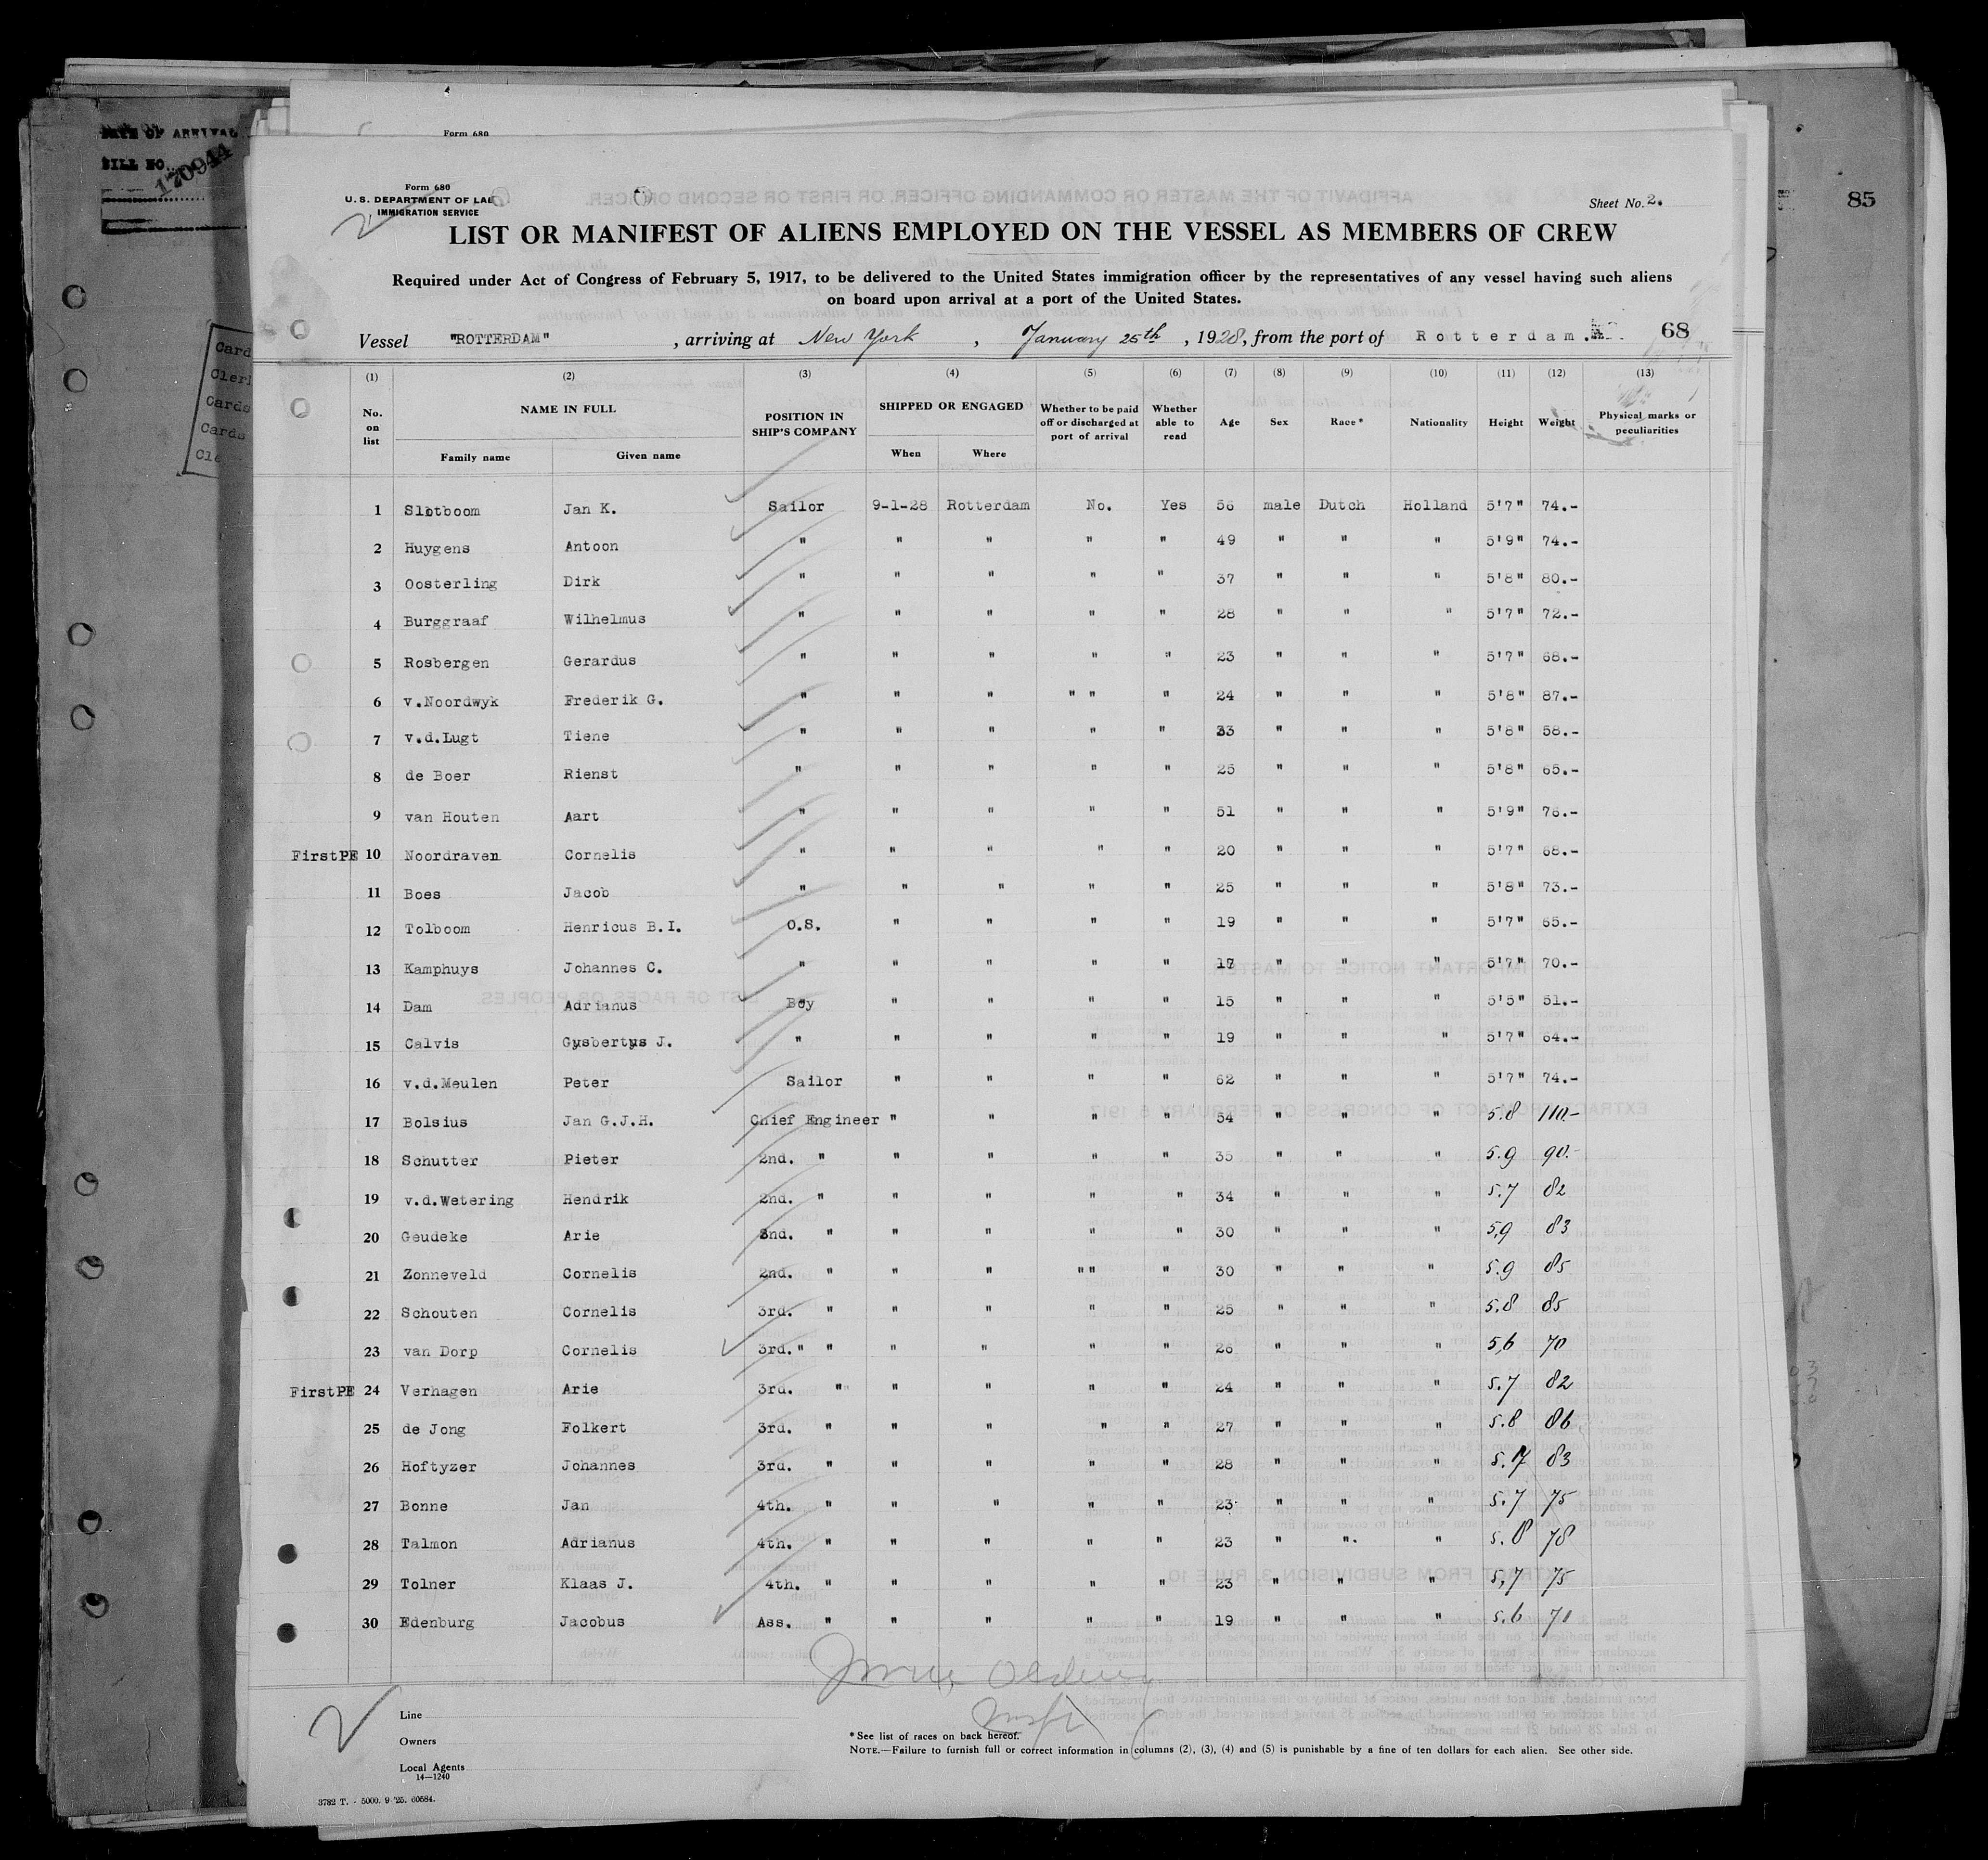 DATE OF ARRIVAL
BILL NO.
170944
Card
Cleri
Cards
Cards
Cle
Form 680
85
Form 680
U. S. DEPARTMENT OF LAB
IMMIGRATION SERVICE
Sheet No. 2.
LIST OR MANIFEST OF ALIENS EMPLOYED ON THE VESSEL AS MEMBERS OF CREW
Required under Act of Congress of February 5, 1917, to be delivered to the United States immigration officer by the representatives of any vessel having such aliens
on board upon arrival at a port of the United States.
Vessel "ROTTERDAM" , arriving at New York , January 25th , 1928, from the port of Rotterdam. 68
(1) (2) (3) (4) (5) (6) (7) (8) (9) (10) (11) (12) (13)
No. on list NAME IN FULL Family name Given name POSITION IN SHIP'S COMPANY SHIPPED OR ENGAGED When Where Whether to be paid off or discharged at port of arrival Whether able to read Age Sex Race* Nationality Height Weight Physical marks or peculiarities
1 Slotboom Jan K. Sailor 9-1-28 Rotterdam No. Yes 56 male Dutch Holland 5'7" 74.-
2 Huygens Antoon " " " " " 49 " " " 5'9" 74.-
3 Oosterling Dirk " " " " " 37 " " " 5'8" 80.-
4 Burggraaf Wilhelmus " " " " " 28 " " " 5'7" 72.-
5 Rosbergen Gerardus " " " " " 23 " " " 5'7" 68.-
6 v.Noordwyk Frederik G. " " " " " " 24 " " " 5'8" 87.-
7 v.d.Lugt Tiene " " " " " 33 " " " 5'8" 58.-
8 de Boer Rienst " " " " " 25 " " " 5'8" 65.-
9 van Houten Aart " " " " " 51 " " " 5'9" 76.-
FirstPE 10 Noordraven Cornelis " " " " " 20 " " " 5'7" 68.-
11 Boes Jacob " " " " " 25 " " " 5'8" 73.-
12 Tolboom Henricus B.I. O.S. " " " " 19 " " " 5'7" 65.-
13 Kamphuys Johannes C. " " " " " " " " 5'7" 70.-
14 Dam Adrianus Boy " " " " 15 " " " 5'5" 51.-
15 Calvis Gysbertus J. " " " " " 19 " " " 5'7" 64.-
16 v.d.Meulen Peter Sailor " " " " 62 " " " 5'7" 74.-
17 Bolsius Jan G.J.H. Chief Engineer " " " " 54 " " " 5.8 110.-
18 Schutter Pieter 2nd. " " " " " 35 " " " 5.9 90.-
19 v.d.Wetering Hendrik 2nd. " " " " " 34 " " " 5.7 82
20 Geudeke Arie 2nd. " " " " " 30 " " " 5.9 83
21 Zonneveld Cornelis 2nd. " " " " " " 30 " " " 5.9 85
22 Schouten Cornelis 3rd. " " " " " 25 " " " 5.8 85
23 van Dorp Cornelis 3rd. " " " " " " 26 " " " 5,6 70
FirstPE 24 Verhagen Arie 3rd. " " " " " 24 " " " 5.7 82
25 de Jong Folkert 3rd. " " " " " 27 " " " 5.8 86
26 Hoftyzer Johannes 3rd. " " " " " 28 " " " 5.7 83
27 Bonne Jan 4th. " " " " " 23 " " " 5.7 75
28 Talmon Adrianus 4th. " " " " " 23 " ". " 5.8 78
29 Tolner Klaas J. 4th. " " " " " 23 " " " 5,7 75
30 Edenburg Jacobus Ass. " " " " " 19 " " " 5.6 71
Line
Owners
Local Agents
14—1240
*See list of races on back hereof.
NOTE.—Failure to furnish full or correct information in columns (2), (3), (4) and (5) is punishable by a fine of ten dollars for each alien. See other side.
3782 T. - 5000. 9 '25. 60584.